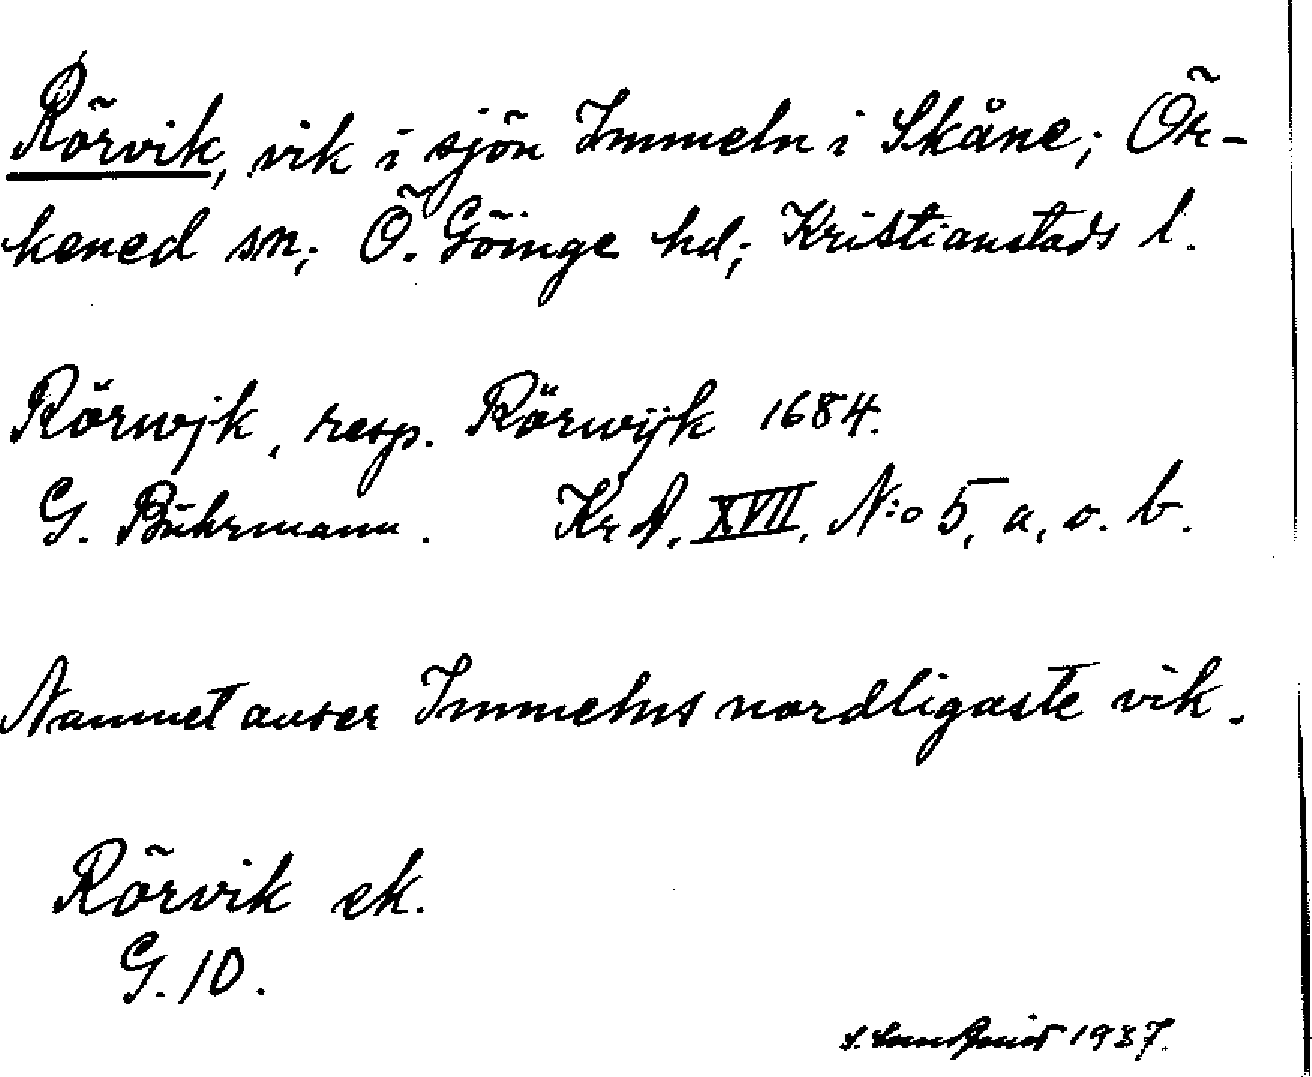 Rörvik, vik i sjön Immeln i Skåne; Ör-
kened sn; Ö. Göinge hd; Kristianstads l.
Rörwjk, resp. Rörwijk 1684.
G. Buhrmann. Kr A. XVII. N:o 5, a, o. b.
Namnet avser Immelns nordligaste vik.
Rörvik ek.
G. 10.
1937.